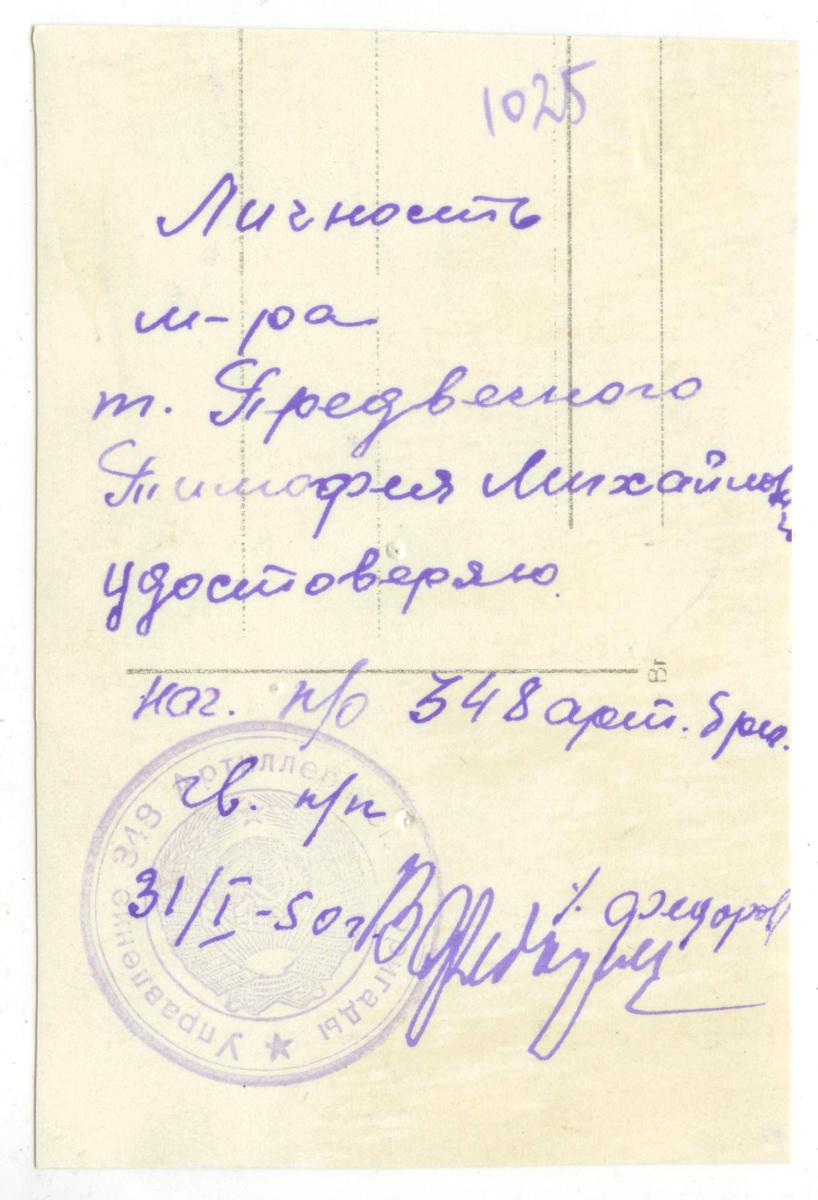 1025
Личность
м-ра
т. Предвесного
Тимофея Михайлови
ча
удостоверяю.
нач. п/о 348 арт. бриг.
гв. п/п
31/I-50г.
/. Федоров/
Управление 348 Артиллерийской бригады